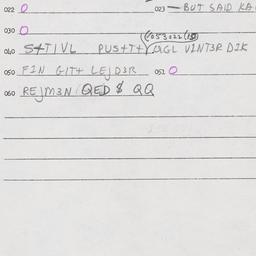 022 O 023 — BUT SAID KA
030 O
(053022(10)
040 S4TIVL PUS+T+ UGL VINT3R DIK
050 FIN GIT+ LEJD3R 051 O
060 REJM3N QED $ QQ